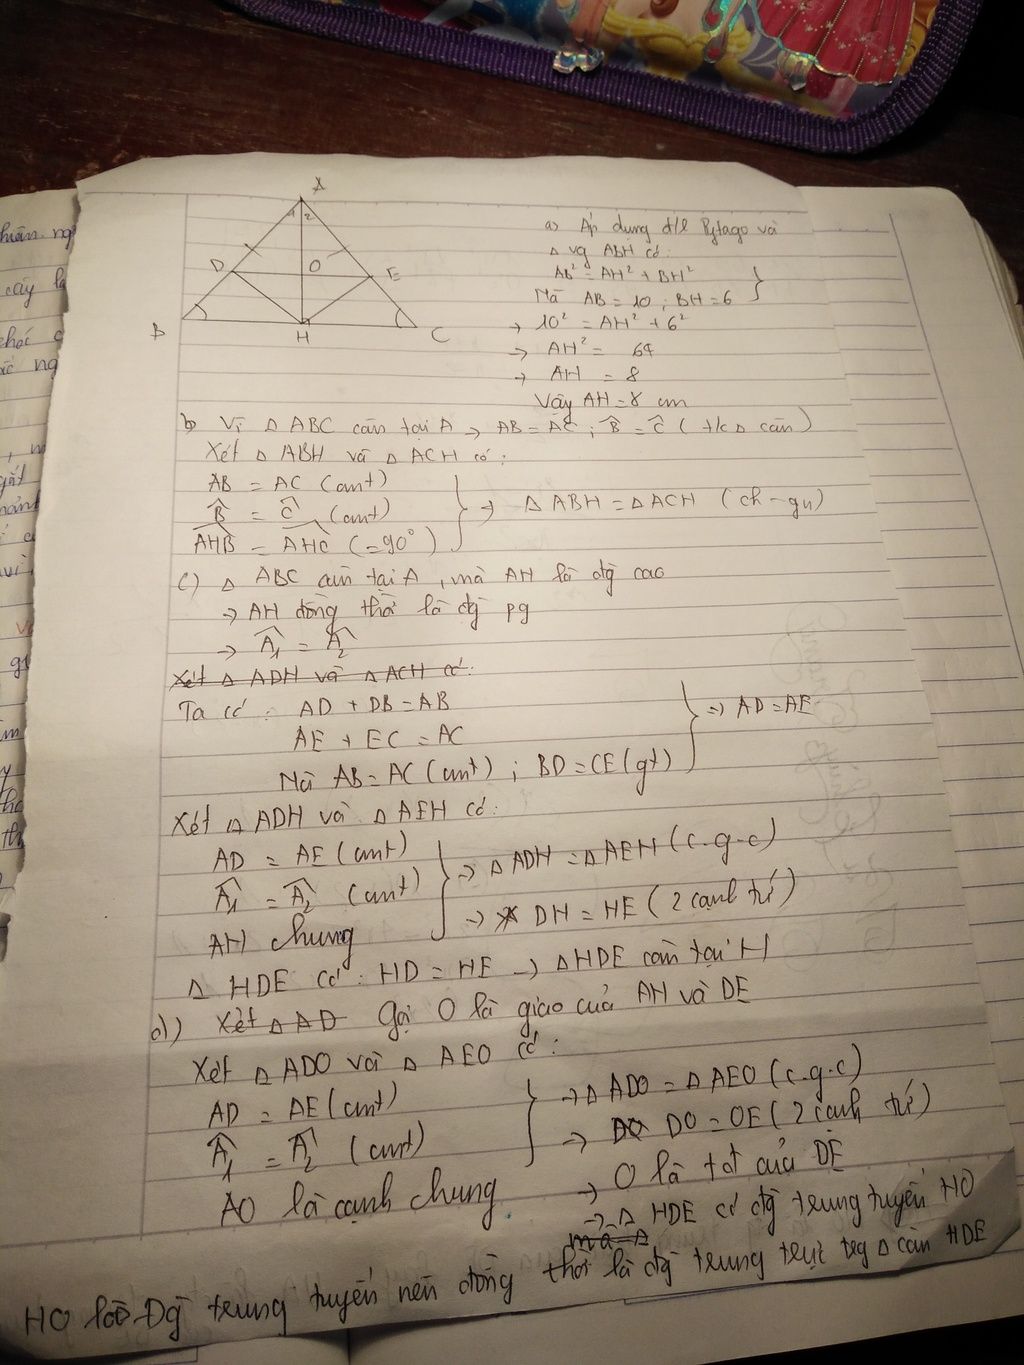 A
1 2
D O E
B H C
a) Áp dụng đ/l Pytago và
Δ vg ABH có:
AB² = AH² + BH²
Mà AB = 10 ; BH = 6
→ 10² = AH² + 6²
→ AH² = 64
→ AH = 8
Vậy AH = 8 cm
b) Vì Δ ABC cân tại A → AB = AC ; B̂ = Ĉ ( t/c Δ cân )
Xét Δ ABH và Δ ACH có :
AB = AC (cmt)
B̂ = Ĉ (cmt)
AHB = AHC (= 90°)
→ Δ ABH = Δ ACH (ch - gn)
c) Δ ABC cân tại A , mà AH là đg cao
→ AH đồng thời là đg pg
→ Â₁ = Â₂
Xét Δ ADH và Δ ACH có:
Ta có : AD + DB = AB
AE + EC = AC
Mà AB = AC (cmt) ; BD = CE (gt)
→ AD = AE
Xét Δ ADH và Δ AEH có:
AD = AE (cmt)
Â₁ = Â₂ (cmt)
AH chung
→ Δ ADH = Δ AEH (c-g-c)
→ DH = HE ( 2 cạnh tứ )
Δ HDE có : HD = HE → Δ HDE cân tại H
d) Xét Δ AD Gọi O là giao của AH và DE
Xét Δ ADO và Δ AEO có :
AD = AE (cmt)
Â₁ = Â₂ (cmt)
AO là cạnh chung
→ Δ ADO = Δ AEO (c-g-c)
→ DO = OE ( 2 cạnh tứ )
→ O là tđ của DE
→ Δ HDE có đg trung tuyến HO
mà Δ
HO là Đg trung tuyến nên đồng thời là đg trung trực trg Δ cân HDE